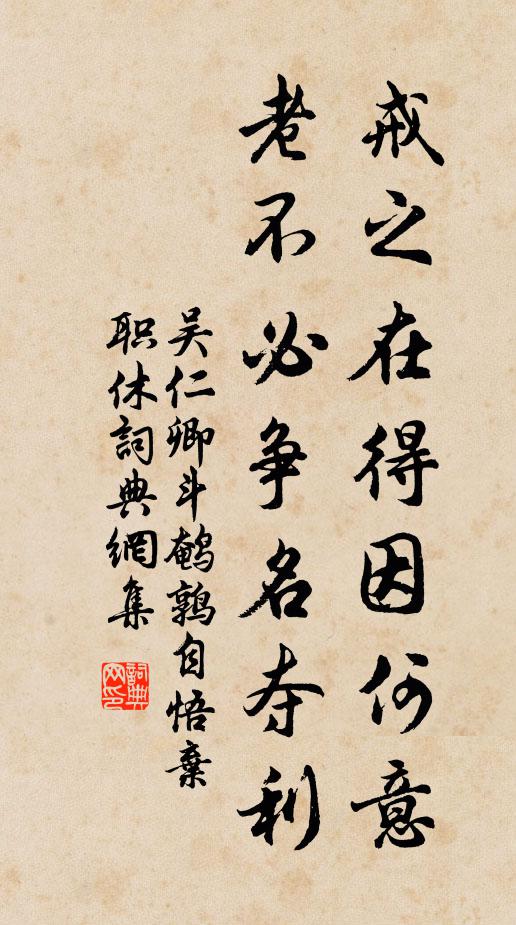 戒之在得因何意
老不必争名夺利
吴仁卿斗鹌鹑自悟弃
职休詞典網集
詞典
网印